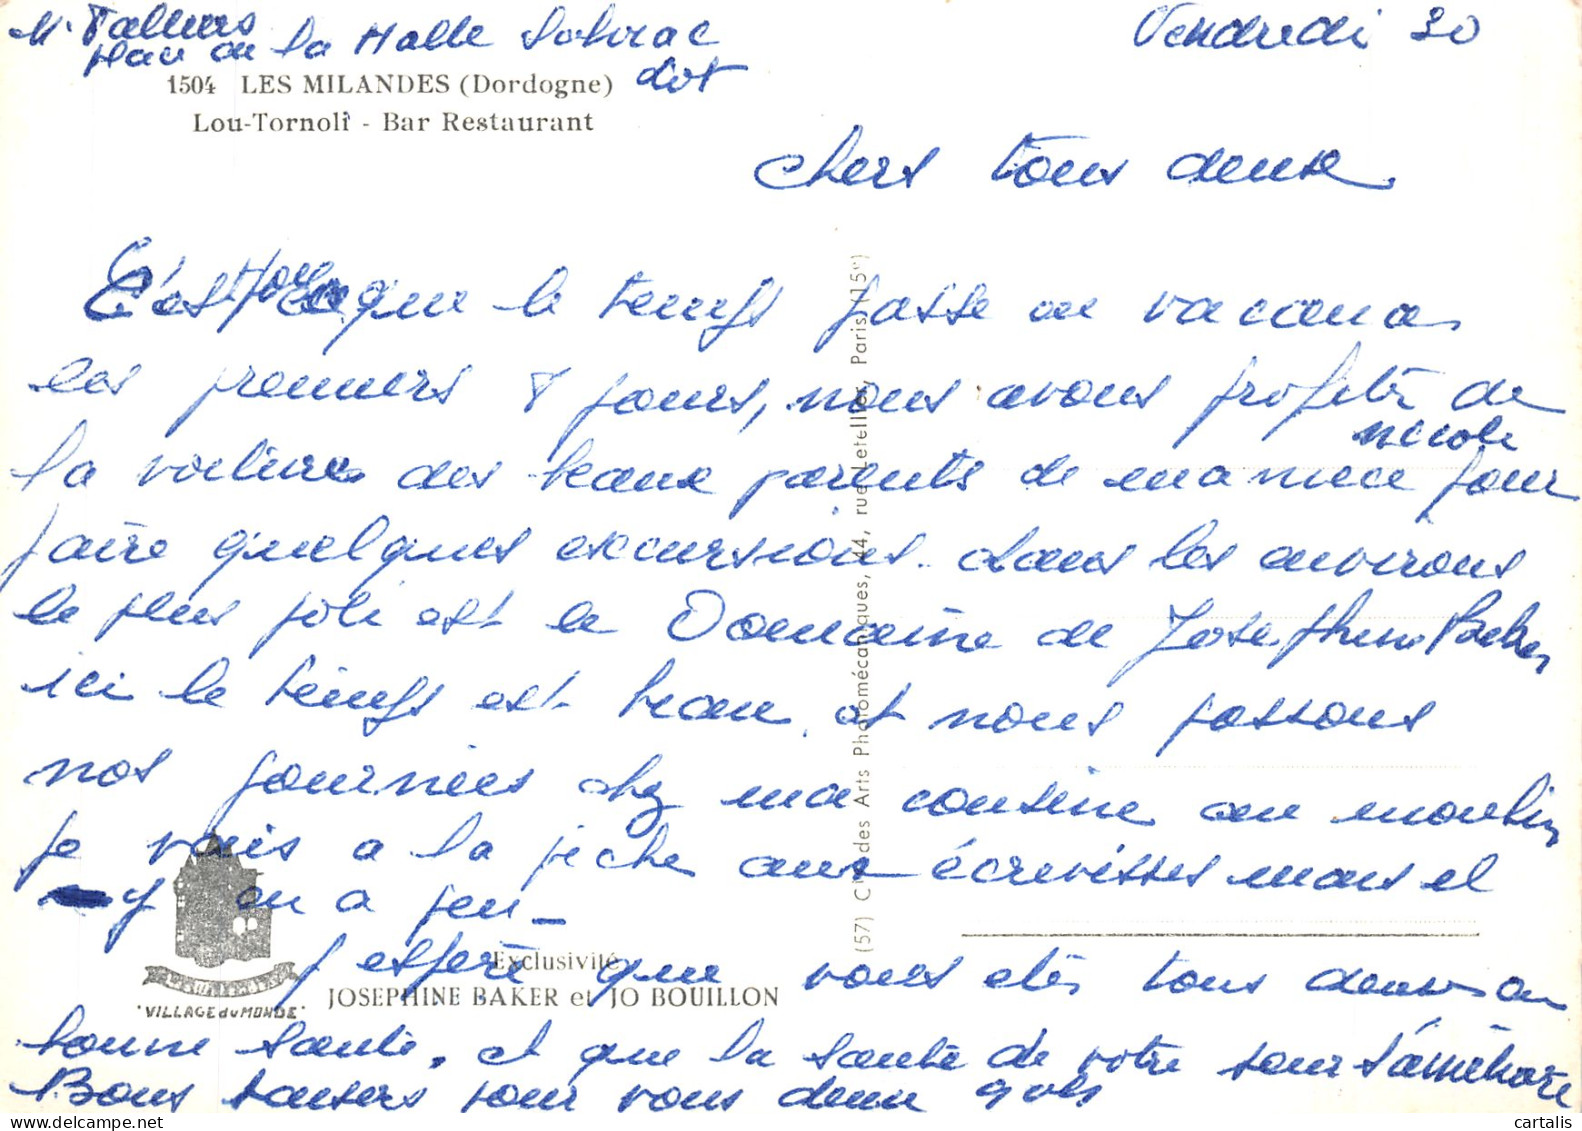 Mr Talleurs Vendredi 30
Place de la Halle Souirac
Lot
1504 LES MILANDES (Dordogne)
Lou-Tornoli - Bar Restaurant
chers tous deux.
C'est que le temps passe en vacances
les premiers 8 jours, nous avons profité de
la voiture des beaux parents de ma niece Nicole pour
faire quelques excursions. dans les environs
le plus joli est le Domaine de Josephine Baker
ici le temps est beau, et nous passons
nos journées chez ma cousine au moulin
je vais a la peche aux écrevisses mais il
y en a peu -
J espère que vous etes tous deux en
bonne santé. et que la santé de votre soeur s'améliore
Bons baisers pour vous deux
Exclusivité
JOSEPHINE BAKER et JO BOUILLON
"VILLAGE du MONDE"
(57) Cie des Arts Photomécaniques, 44, rue Letellier, Paris (15e)
cartalis